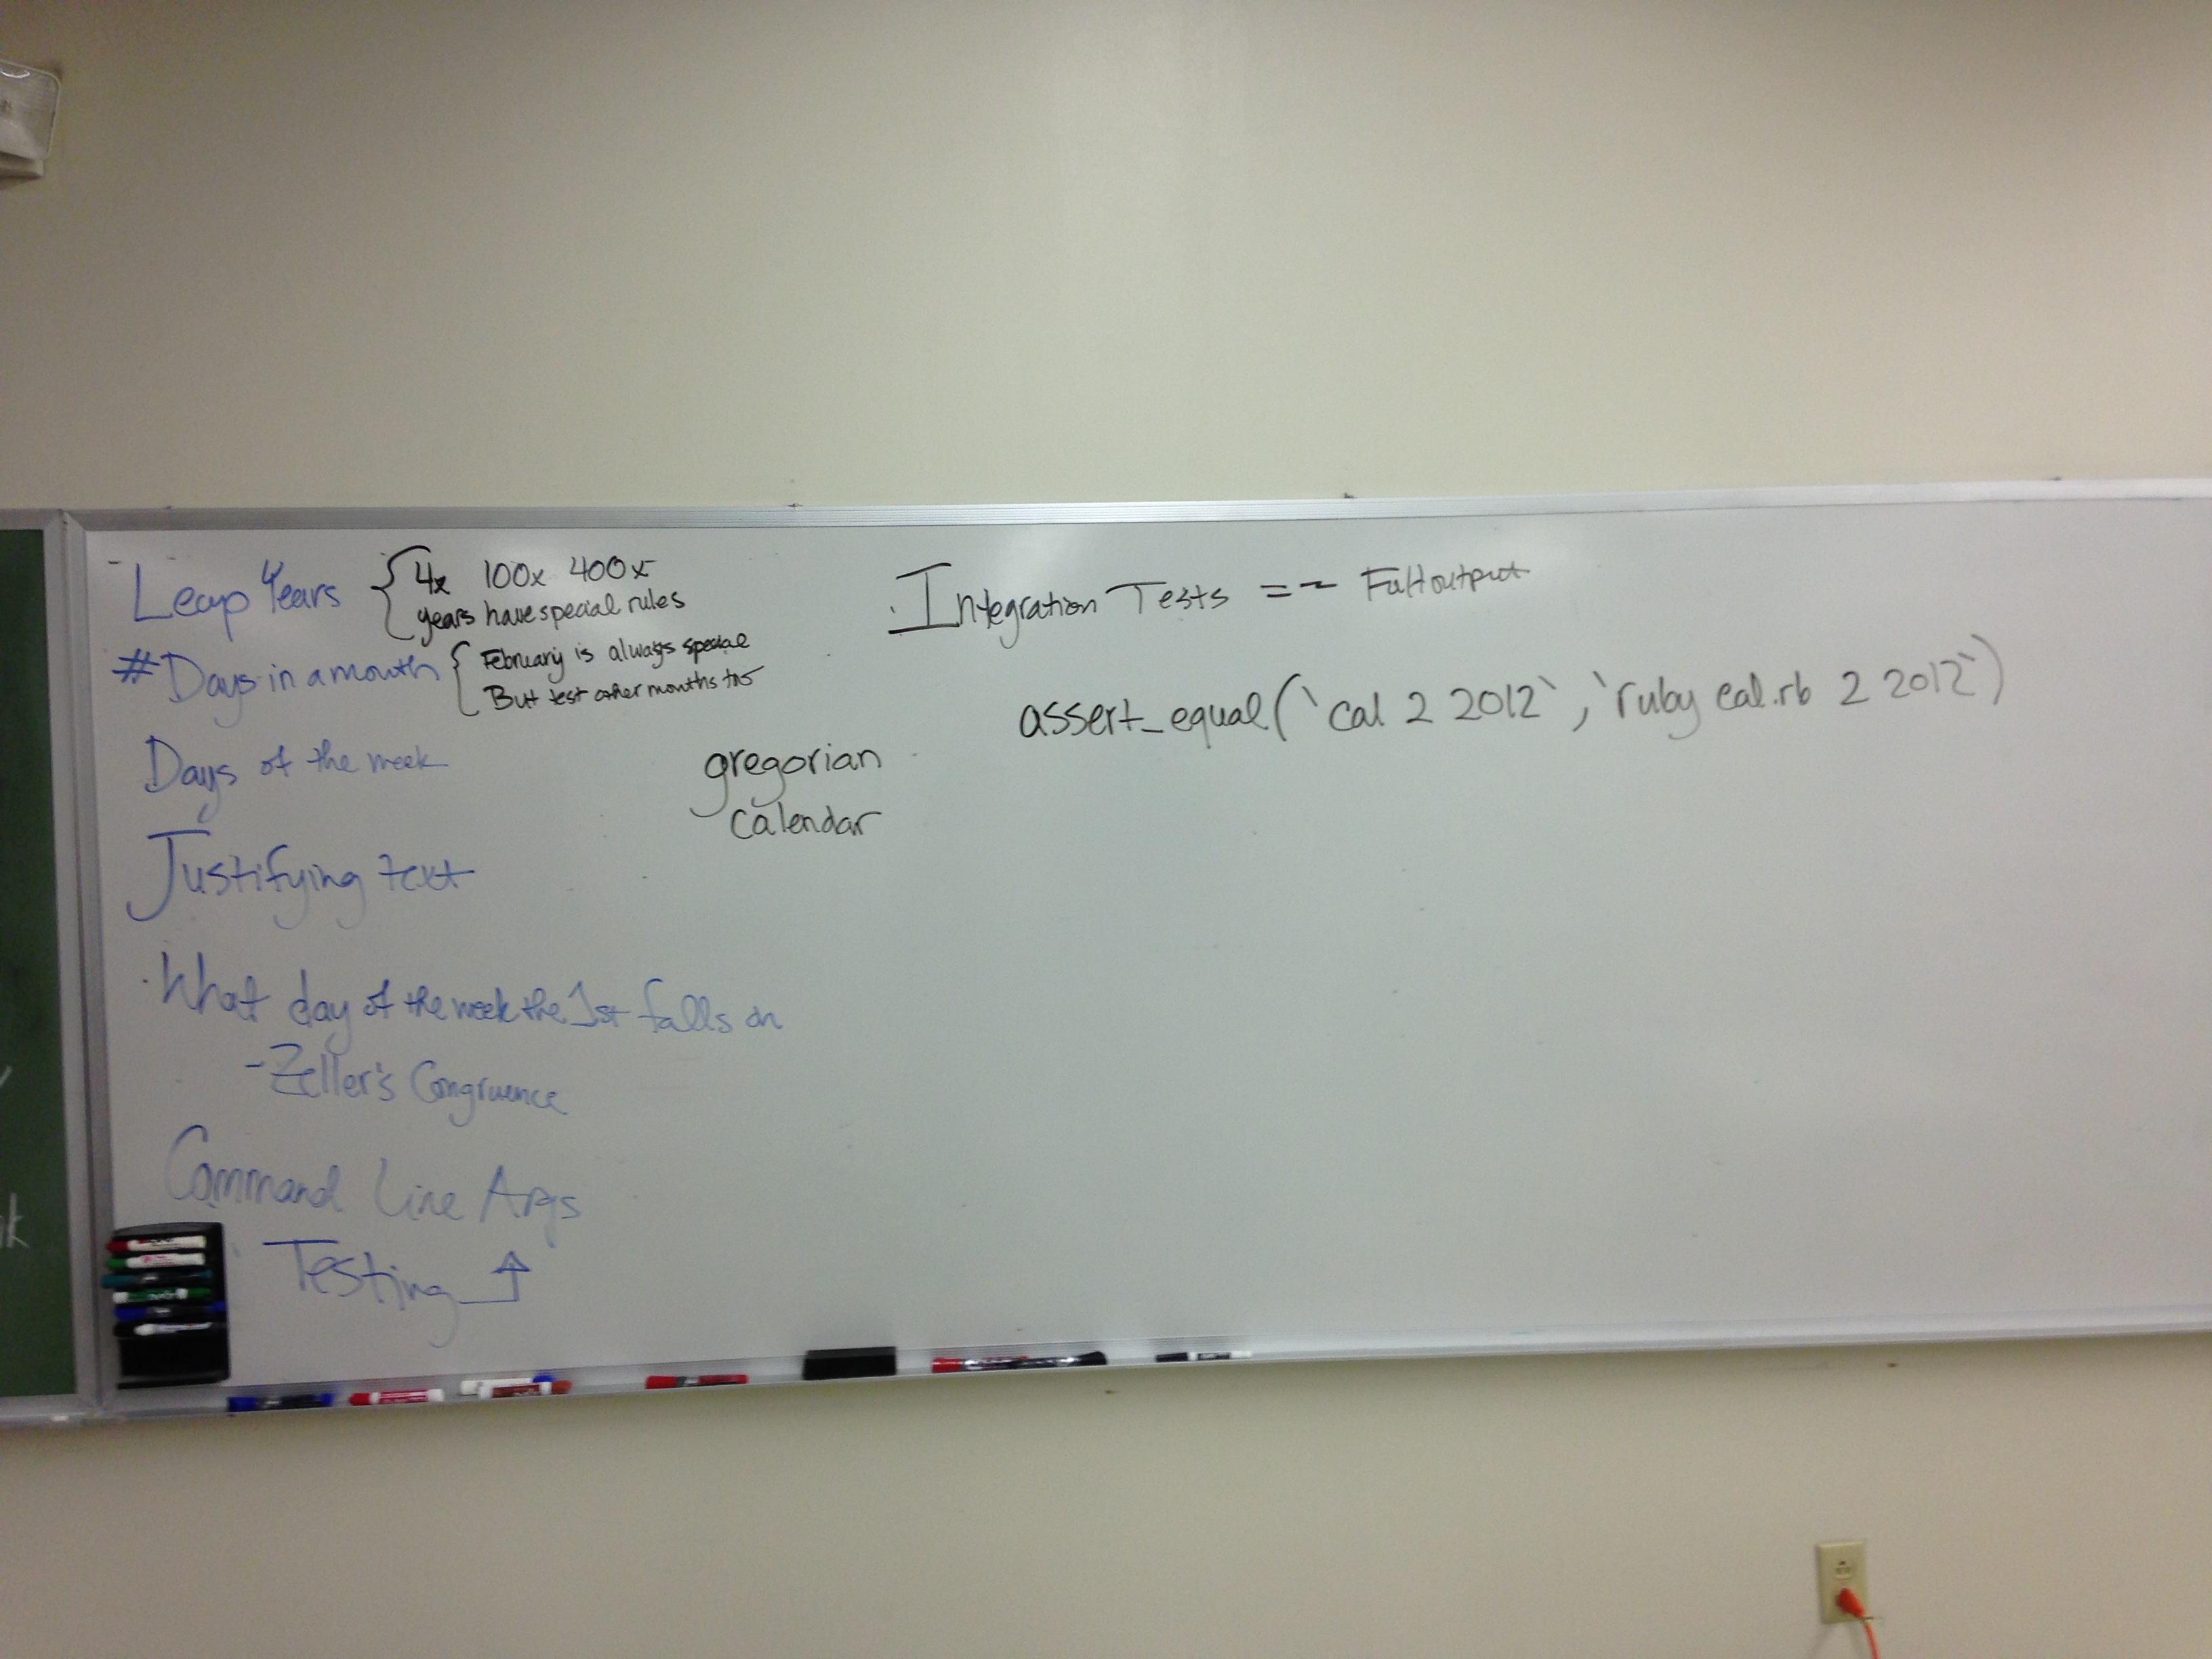 Leap Years { 4x 100x 400x
years have special rules
# Days in a month { February is always special
But test other months too
Days of the week
Justifying text
What day of the week the 1st falls on
- Zeller's Congruence
Command Line Args
Testing ↑
gregorian
calendar
Integration Tests == Full output
assert_equal(`cal 2 2012`, `ruby cal.rb 2 2012`)